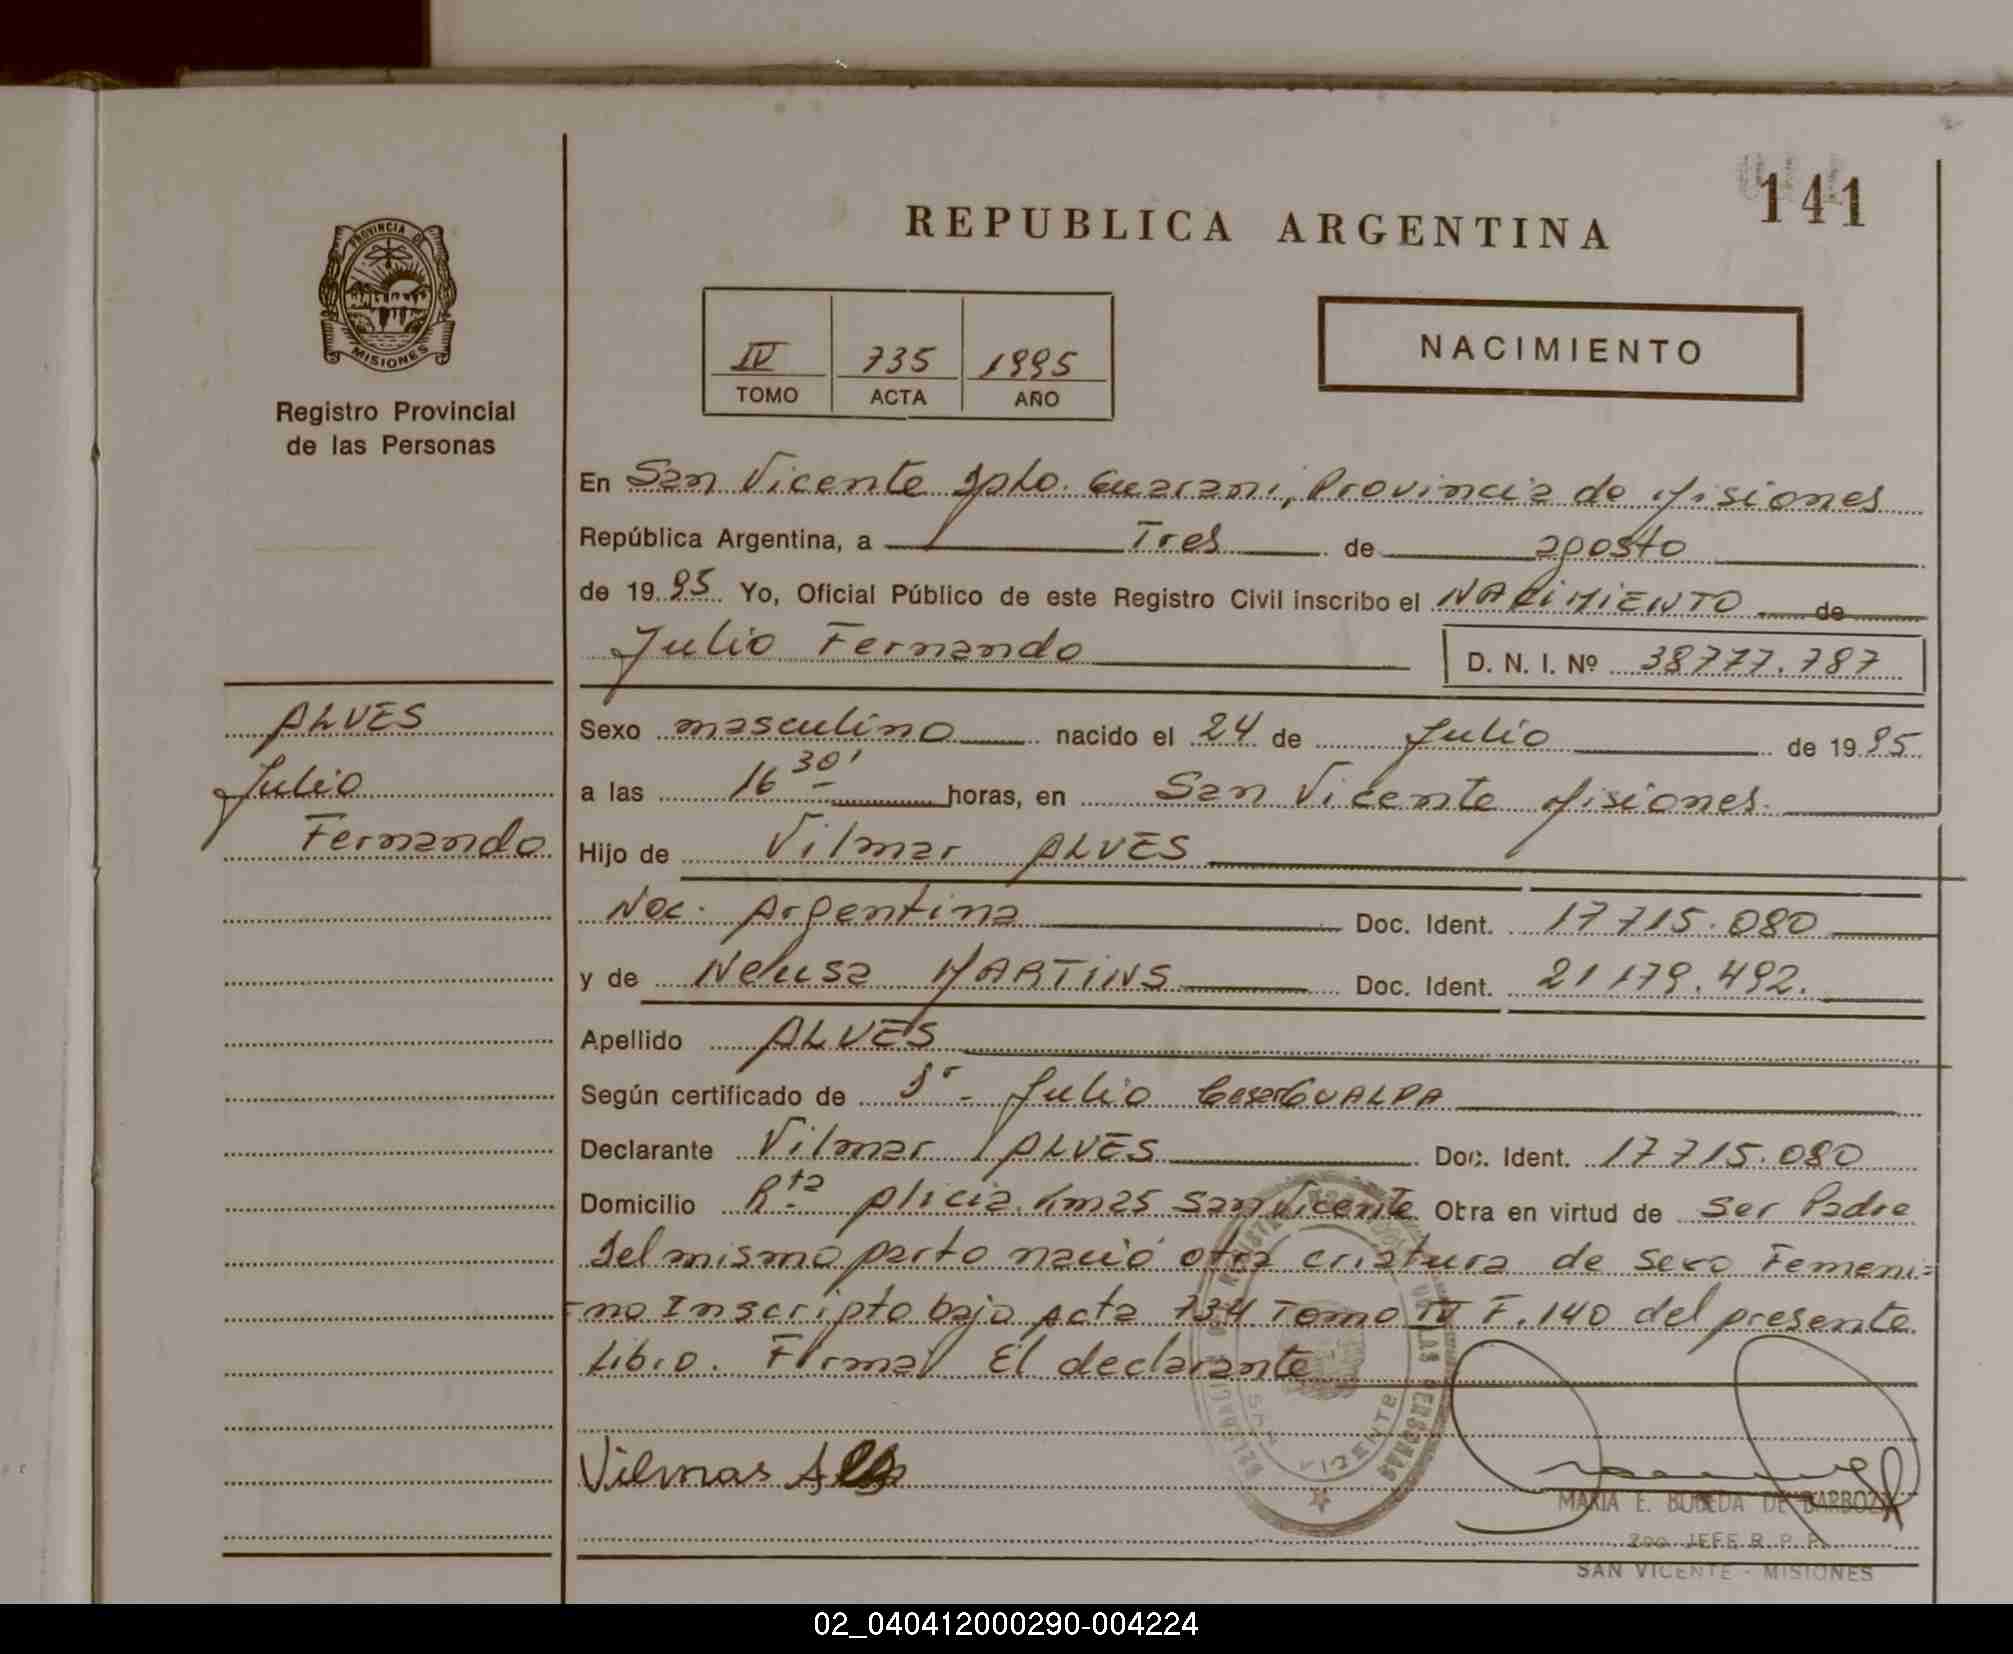 141
REPUBLICA ARGENTINA
PROVINCIA DE
MISIONES
Registro Provincial
de las Personas
NACIMIENTO
IV 735 1995
TOMO ACTA AÑO
En San Vicente Dpto. Guarani, Provincia de Misiones
República Argentina, a Tres de agosto
de 1995 Yo, Oficial Público de este Registro Civil inscribo el NACIMIENTO de
Julio Fernando D. N. I. Nº 38777.787
ALVES
Julio
Fernando
Sexo masculino nacido el 24 de Julio de 1995
a las 16 30' horas, en San Vicente Misiones.
Hijo de Vilmar ALVES
Nac. Argentina Doc. Ident. 17715.080
y de Neusa MARTINS Doc. Ident. 21179.492.
Apellido ALVES
Según certificado de Dr. Julio Cesar GUALPA
Declarante Vilmar ALVES Doc. Ident. 17715.080
Domicilio Rta. Kmas San Vicente Obra en virtud de ser Padre
Del mismo parto nació otra criatura de sexo Femeni=
=no Inscripto bajo Acta 734 Tomo IV F. 140 del presente
Libro. Firma/ El declarante
Vilmas
SAN VICENTE
MARIA E. BOBEDA DE BARBOZA
2do. JEFE R. P. P.
SAN VICENTE - MISIONES
02_040412000290-004224